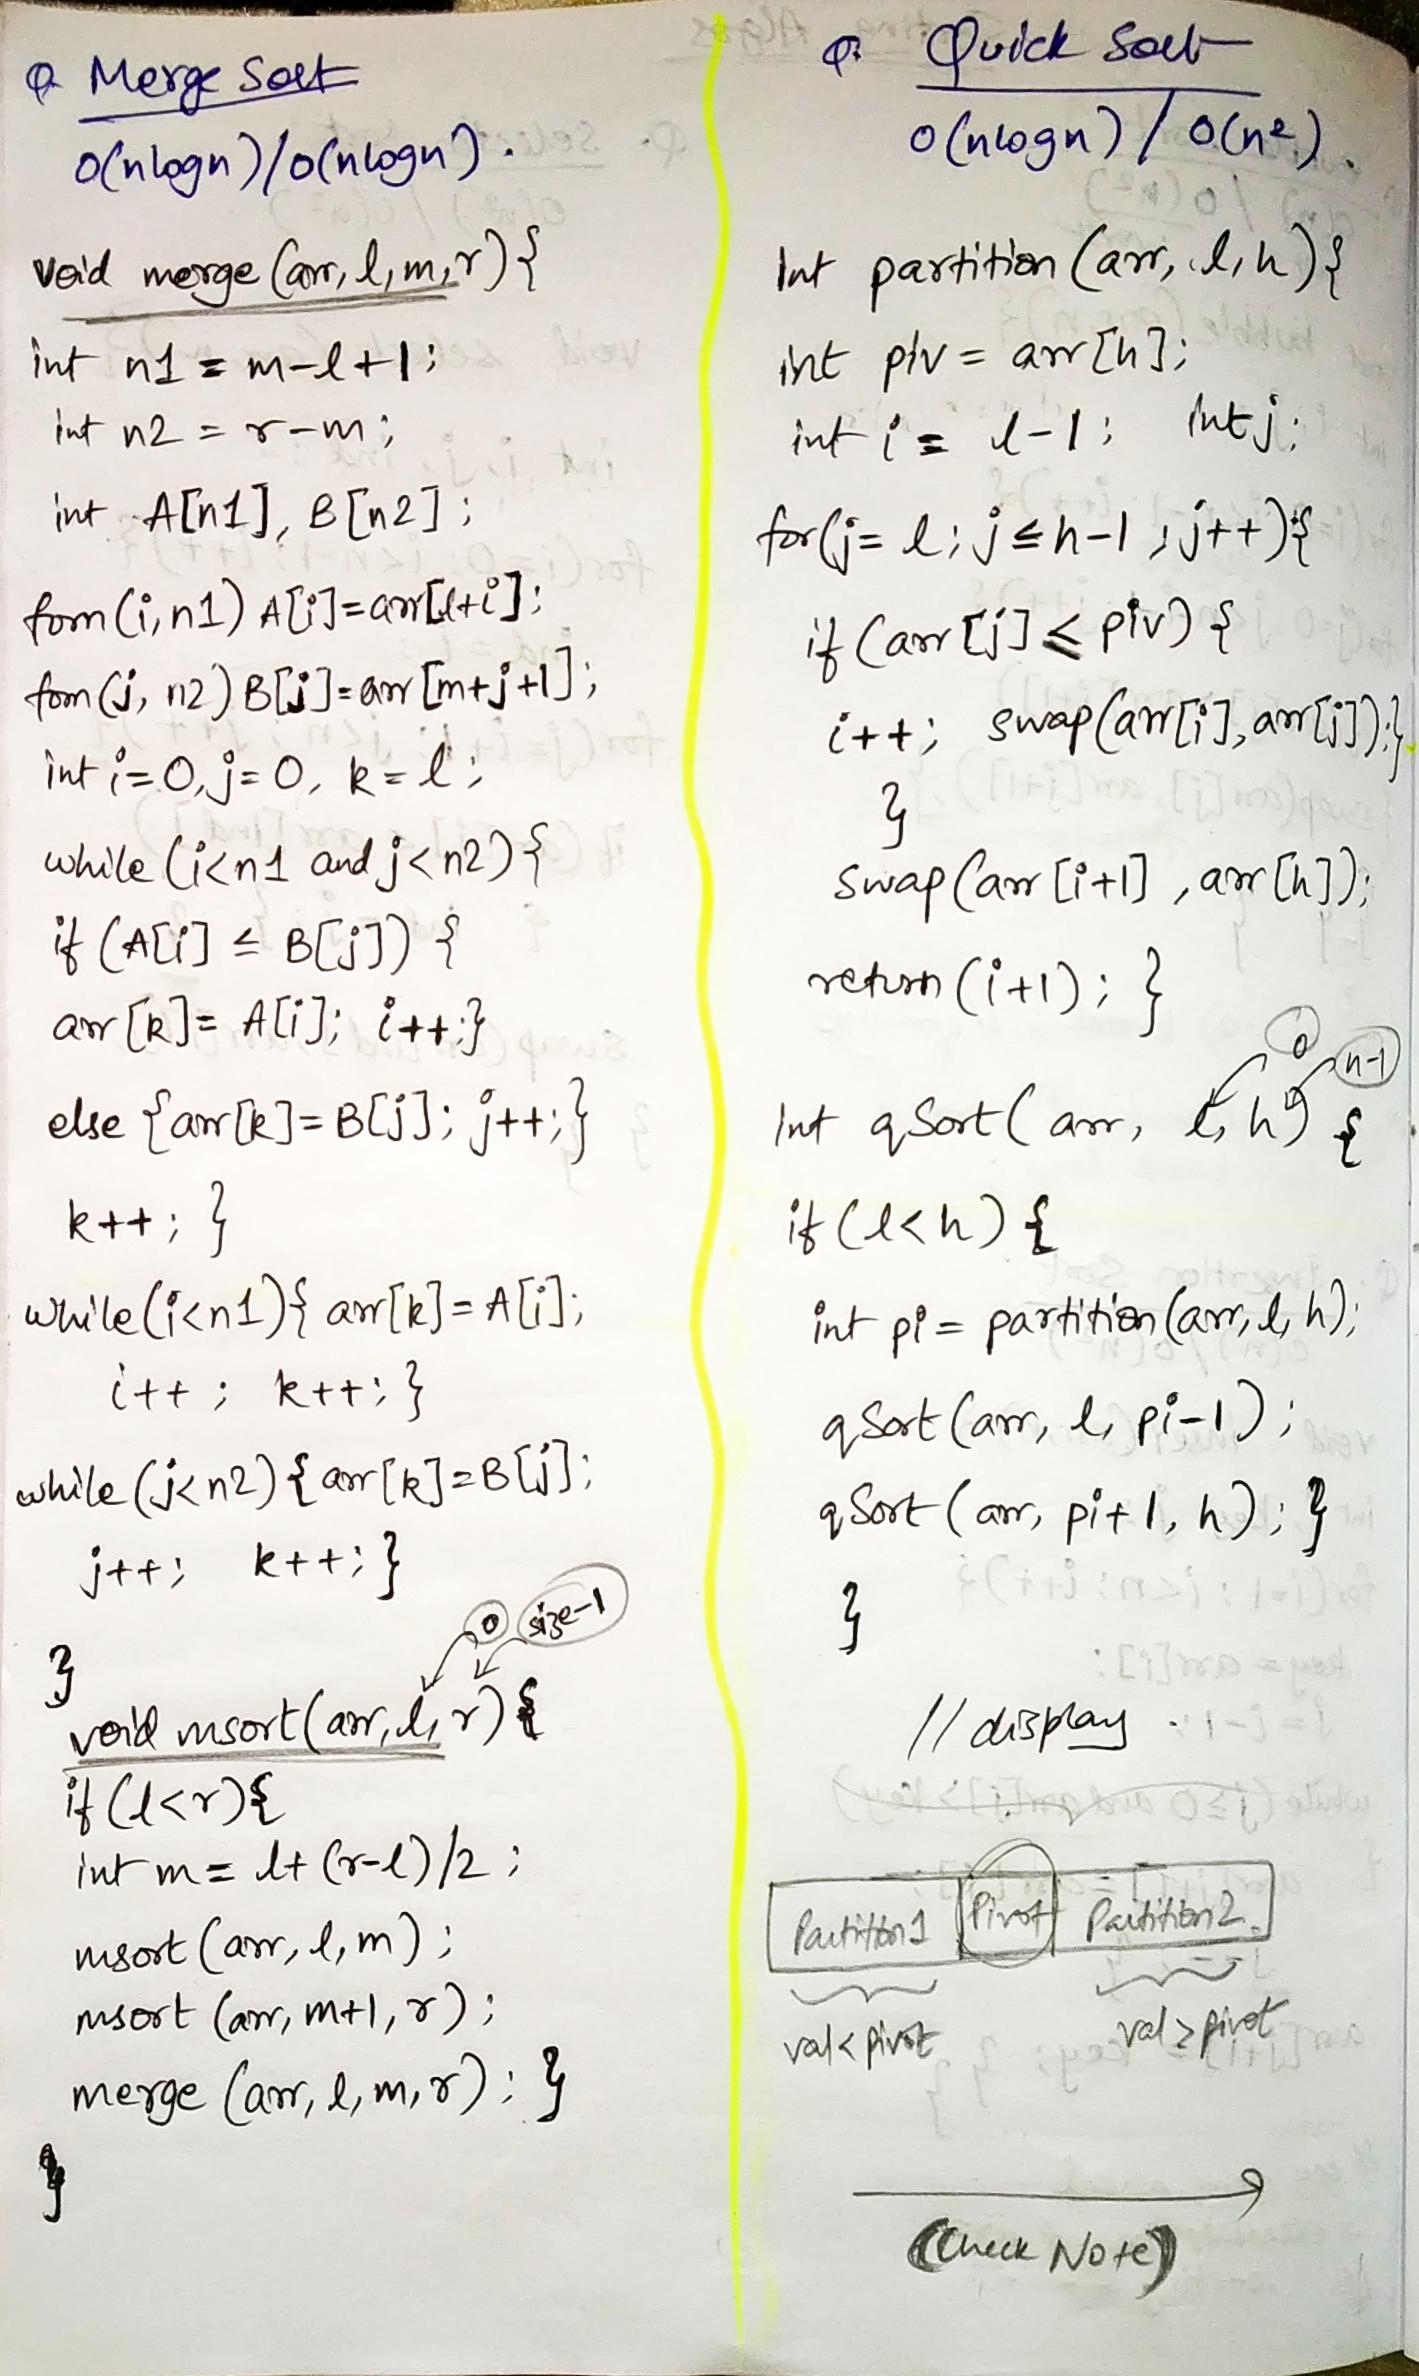 Q Merge Sort
O(nlogn)/O(nlogn).
void merge (arr, l, m, r) {
int n1 = m-l+1;
int n2 = r-m;
int A[n1], B[n2];
forn(i, n1) A[i]=arr[l+i];
forn(j, n2) B[j]=arr[m+j+1];
int i=0, j=0, k=l;
while (i<n1 and j<n2) {
if (A[i] ≤ B[j]) {
arr[k]= A[i]; i++;}
else {arr[k]=B[j]; j++;}
k++; }
while(i<n1){ arr[k]=A[i];
i++; k++;}
while (j<n2) {arr[k]=B[j];
j++; k++;}
}
0 size-1
void msort(arr, l, r) {
if (l<r){
int m= l+(r-l)/2;
msort (arr, l, m);
msort (arr, m+1, r);
merge (arr, l, m, r); }
}
Q. Quick Sort
O(nlogn) / O(n²).
Int partition (arr, l, h){
int piv = arr[h];
int i = l-1; int j;
for(j= l; j≤h-1; j++){
if (arr[j] ≤ piv) {
i++; swap(arr[i], arr[j]);}
}
swap(arr[i+1], arr[h]);
return (i+1); }
0 n-1
Int qSort( arr, l, h) {
if (l<h) {
int pi = partition(arr, l, h);
qSort (arr, l, pi-1);
qSort (arr, pi+1, h); }
}
// display
Partition1 Pivot Partition2
val<pivot val>pivot
(Check Note)